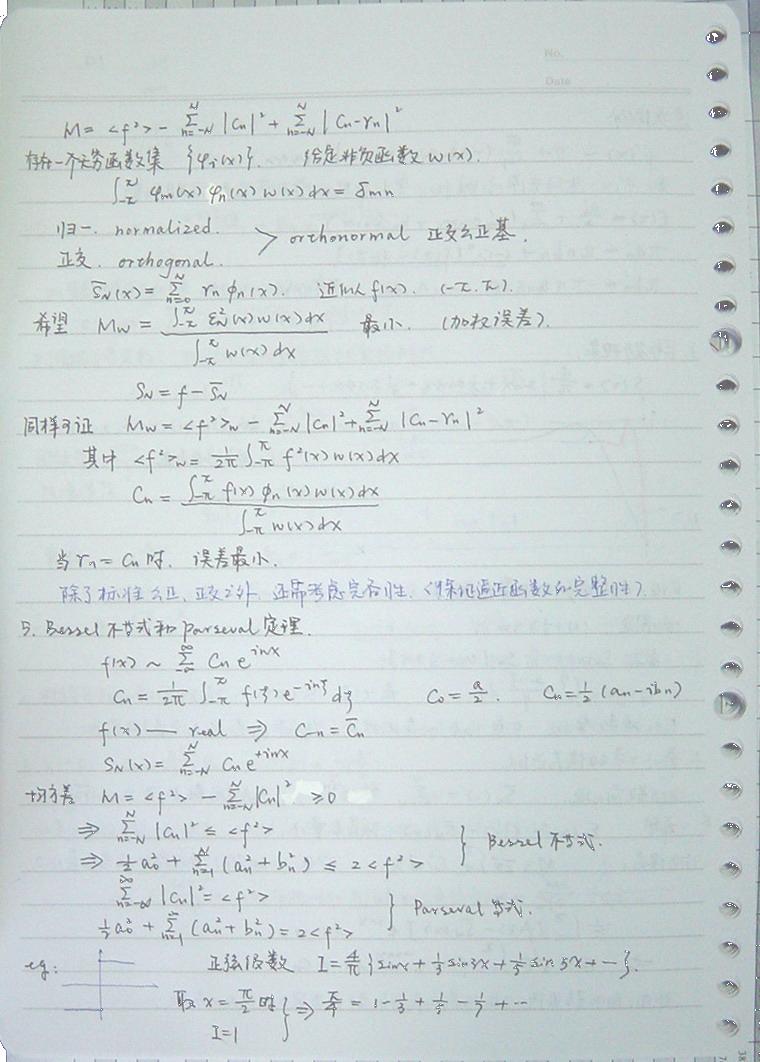 No.
Date
M = <f²> - Σ_{n=-N}^{N} |Cn|² + Σ_{n=-N}^{N} |Cn-γn|²
存在一个无穷函数集 {φi(x)}. 给定非负函数 w(x).
∫_{-π}^{π} φm(x) φn(x) w(x) dx = δmn
归一. normalized.
正交. orthogonal. > orthonormal 正交么正基.
S̄N(x) = Σ_{n=0}^{N} γn ϕn(x). 近似 f(x). (-π.π).
希望 Mw = ∫_{-π}^{π} εN²(x) w(x) dx / ∫_{-π}^{π} w(x) dx 最小. (加权误差).
SN = f - S̄N
同样可证 Mw = <f²>w - Σ_{n=-N}^{N} |Cn|² + Σ_{n=-N}^{N} |Cn-γn|²
其中 <f²>w = 1/2π ∫_{-π}^{π} f²(x) w(x) dx
Cn = ∫_{-π}^{π} f(x) ϕn(x) w(x) dx / ∫_{-π}^{π} w(x) dx
当 γn = Cn 时. 误差最小.
除了标准么正、正交之外, 还需考虑完备性. (保证逼近函数的完整性).
5. Bessel 不等式和 Parseval 定理.
f(x) ~ Σ_{-∞}^{∞} Cn e^{inx}
Cn = 1/2π ∫_{-π}^{π} f(ξ) e^{-inξ} dξ C0 = a/2. Cn = 1/2 (an - ibn)
f(x) — real ⇒ C-n = C̄n
SN(x) = Σ_{n=-N}^{N} Cn e^{+inx}
均方差 M = <f²> - Σ_{n=-N}^{N} |Cn|² ≥ 0
⇒ Σ_{n=-N}^{N} |Cn|² ≤ <f²>
⇒ 1/2 a0² + Σ_{n=1}^{N} (an² + bn²) ≤ 2<f²> } Bessel 不等式.
Σ_{n=-∞}^{∞} |Cn|² = <f²>
1/2 a0² + Σ_{n=1}^{∞} (an² + bn²) = 2<f²> } Parseval 等式.
eg: 正弦级数 I = 4/π {sinx + 1/3 sin3x + 1/5 sin5x + …}.
取 x = π/2 时
I = 1 } ⇒ π/4 = 1 - 1/3 + 1/5 - 1/7 + …